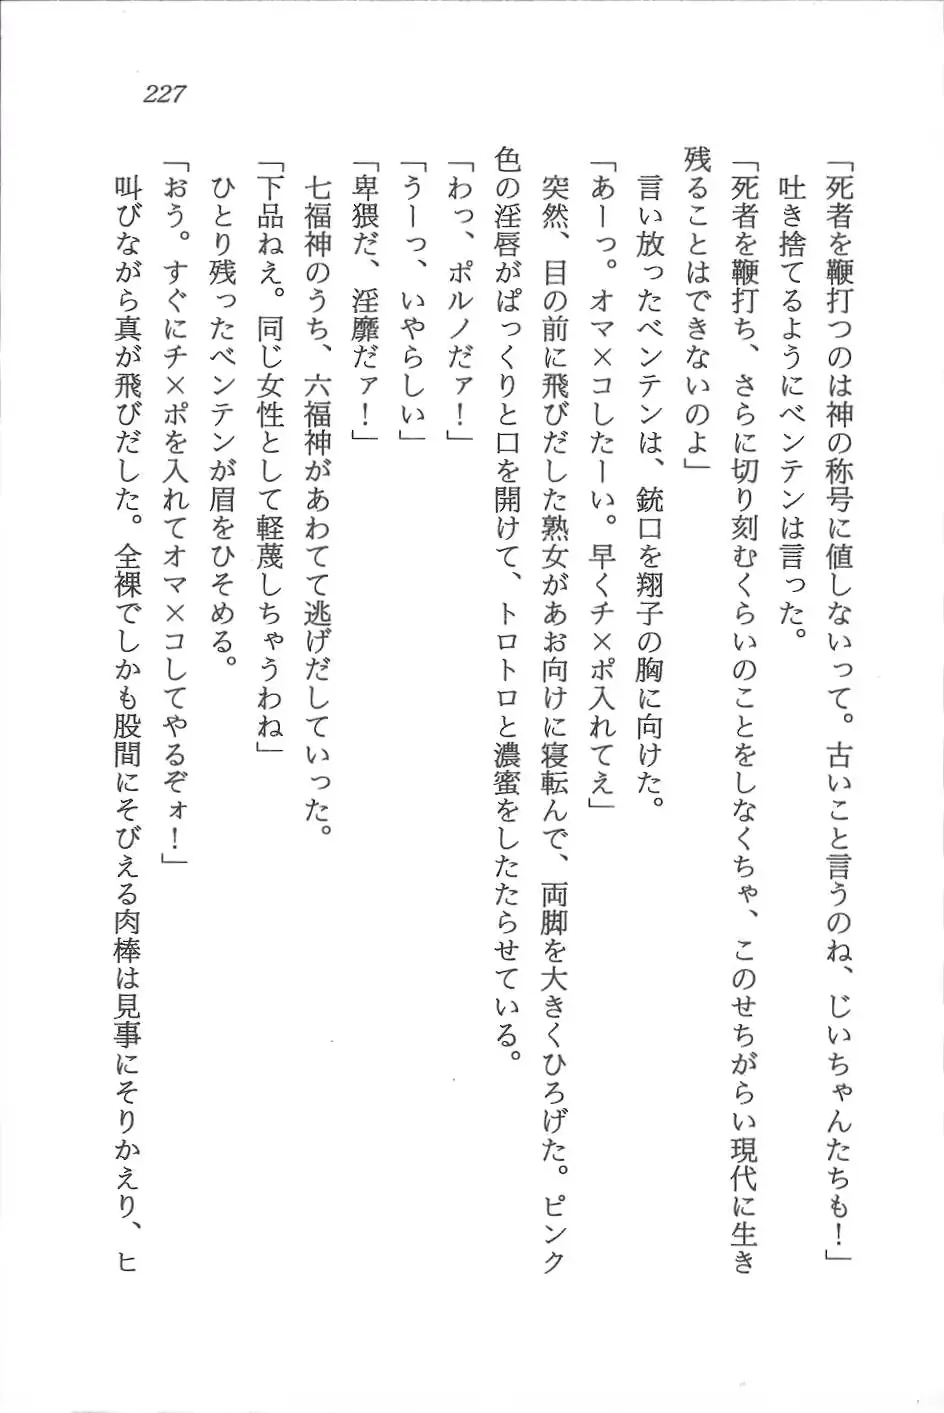 227
「死者を鞭打つのは神の称号に値しないって。古いこと言うのね、じいちゃんたちも！」
吐き捨てるようにベンテンは言った。
「死者を鞭打ち、さらに切り刻むくらいのことをしなくちゃ、このせちがらい現代に生き
残ることはできないのよ」
言い放ったベンテンは、銃口を翔子の胸に向けた。
「あーっ。オマ×コしたーい。早くチ×ポ入れてえ」
突然、目の前に飛びだした熟女があお向けに寝転んで、両脚を大きくひろげた。ピンク
色の淫唇がぱっくりと口を開けて、トロトロと濃蜜をしたたらせている。
「わっ、ポルノだァ！」
「うーっ、いやらしい」
「卑猥だ、淫靡だァ！」
七福神のうち、六福神があわてて逃げだしていった。
「下品ねえ。同じ女性として軽蔑しちゃうわね」
ひとり残ったベンテンが眉をひそめる。
「おう。すぐにチ×ポを入れてオマ×コしてやるぞォ！」
叫びながら真が飛びだした。全裸でしかも股間にそびえる肉棒は見事にそりかえり、ヒ